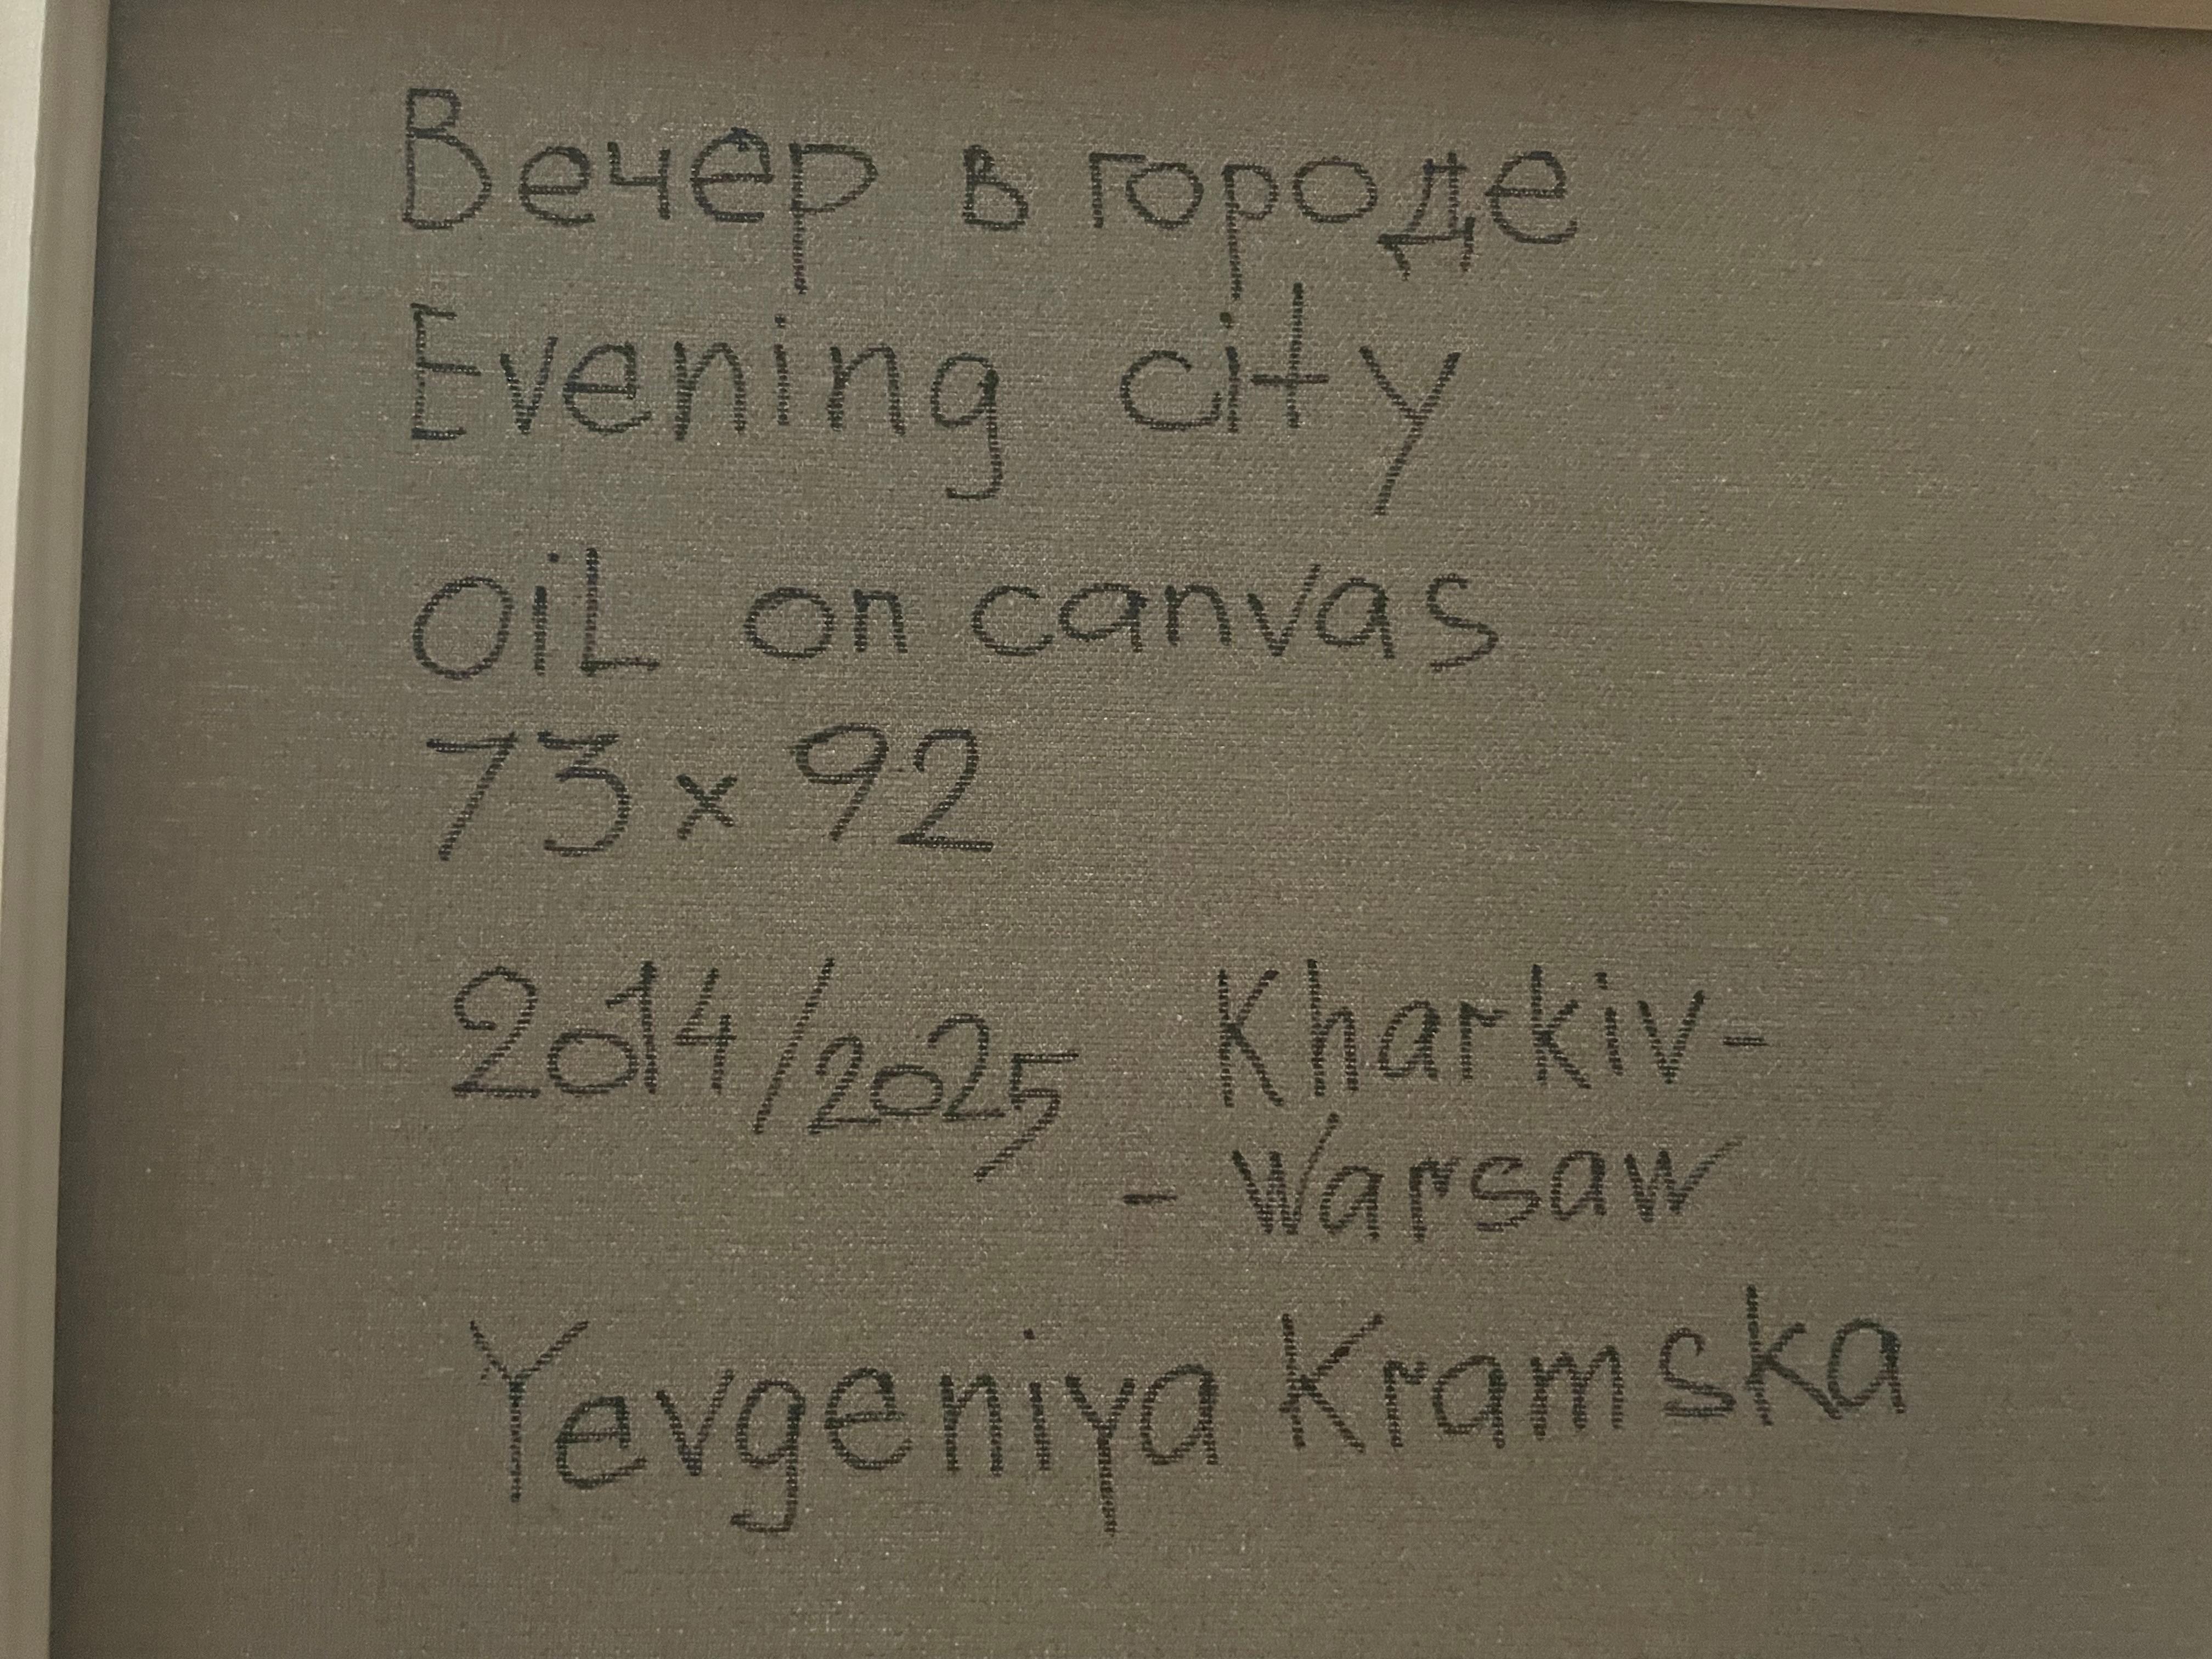 Вечер в городе
Evening city
OiL on canvas
73 x 92
2014/2025 Kharkiv-
- Warsaw
Yevgeniya Kramska